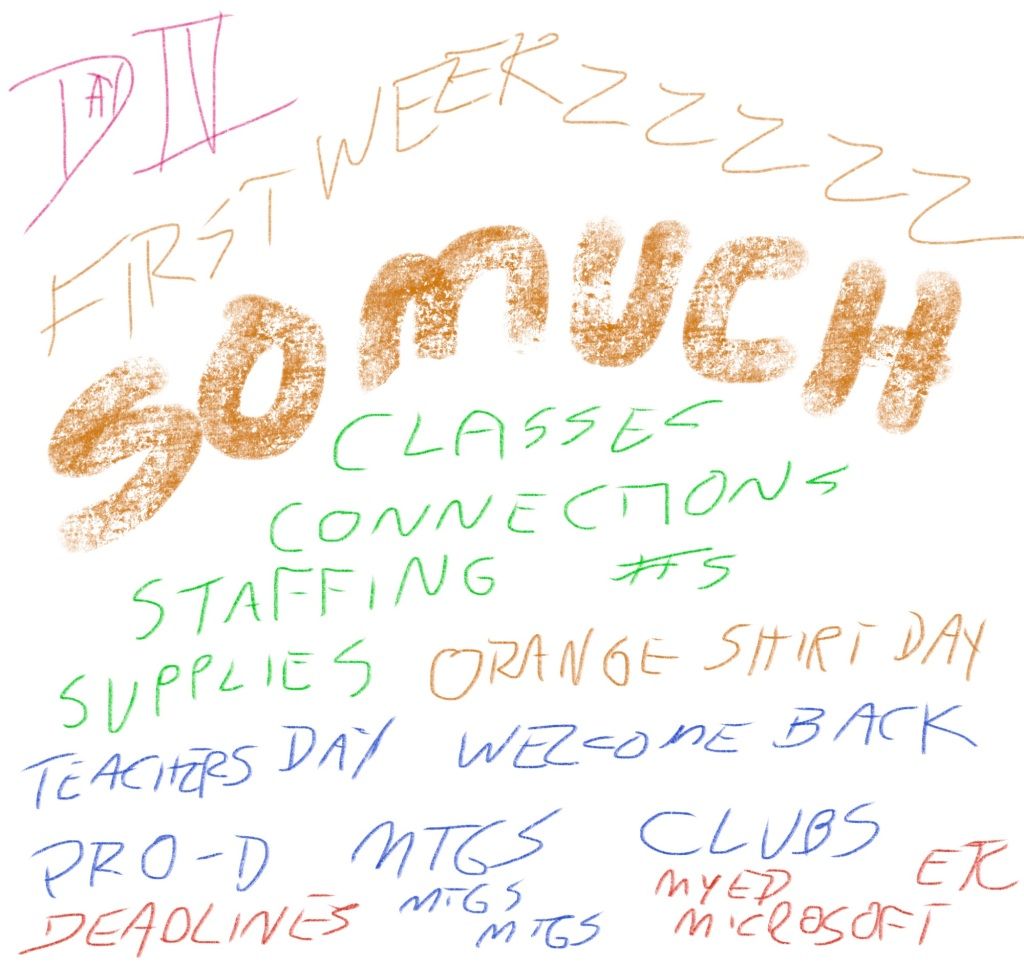 DAY IV
FIRST WEEK ZZZZZ
SO MUCH
CLASSES
CONNECTIONS
STAFFING #S
SUPPLIES ORANGE SHIRT DAY
TEACHERS DAY WELCOME BACK
PRO-D MTGS CLUBS
MTGS MYED ETC
DEADLINES MTGS MICROSOFT